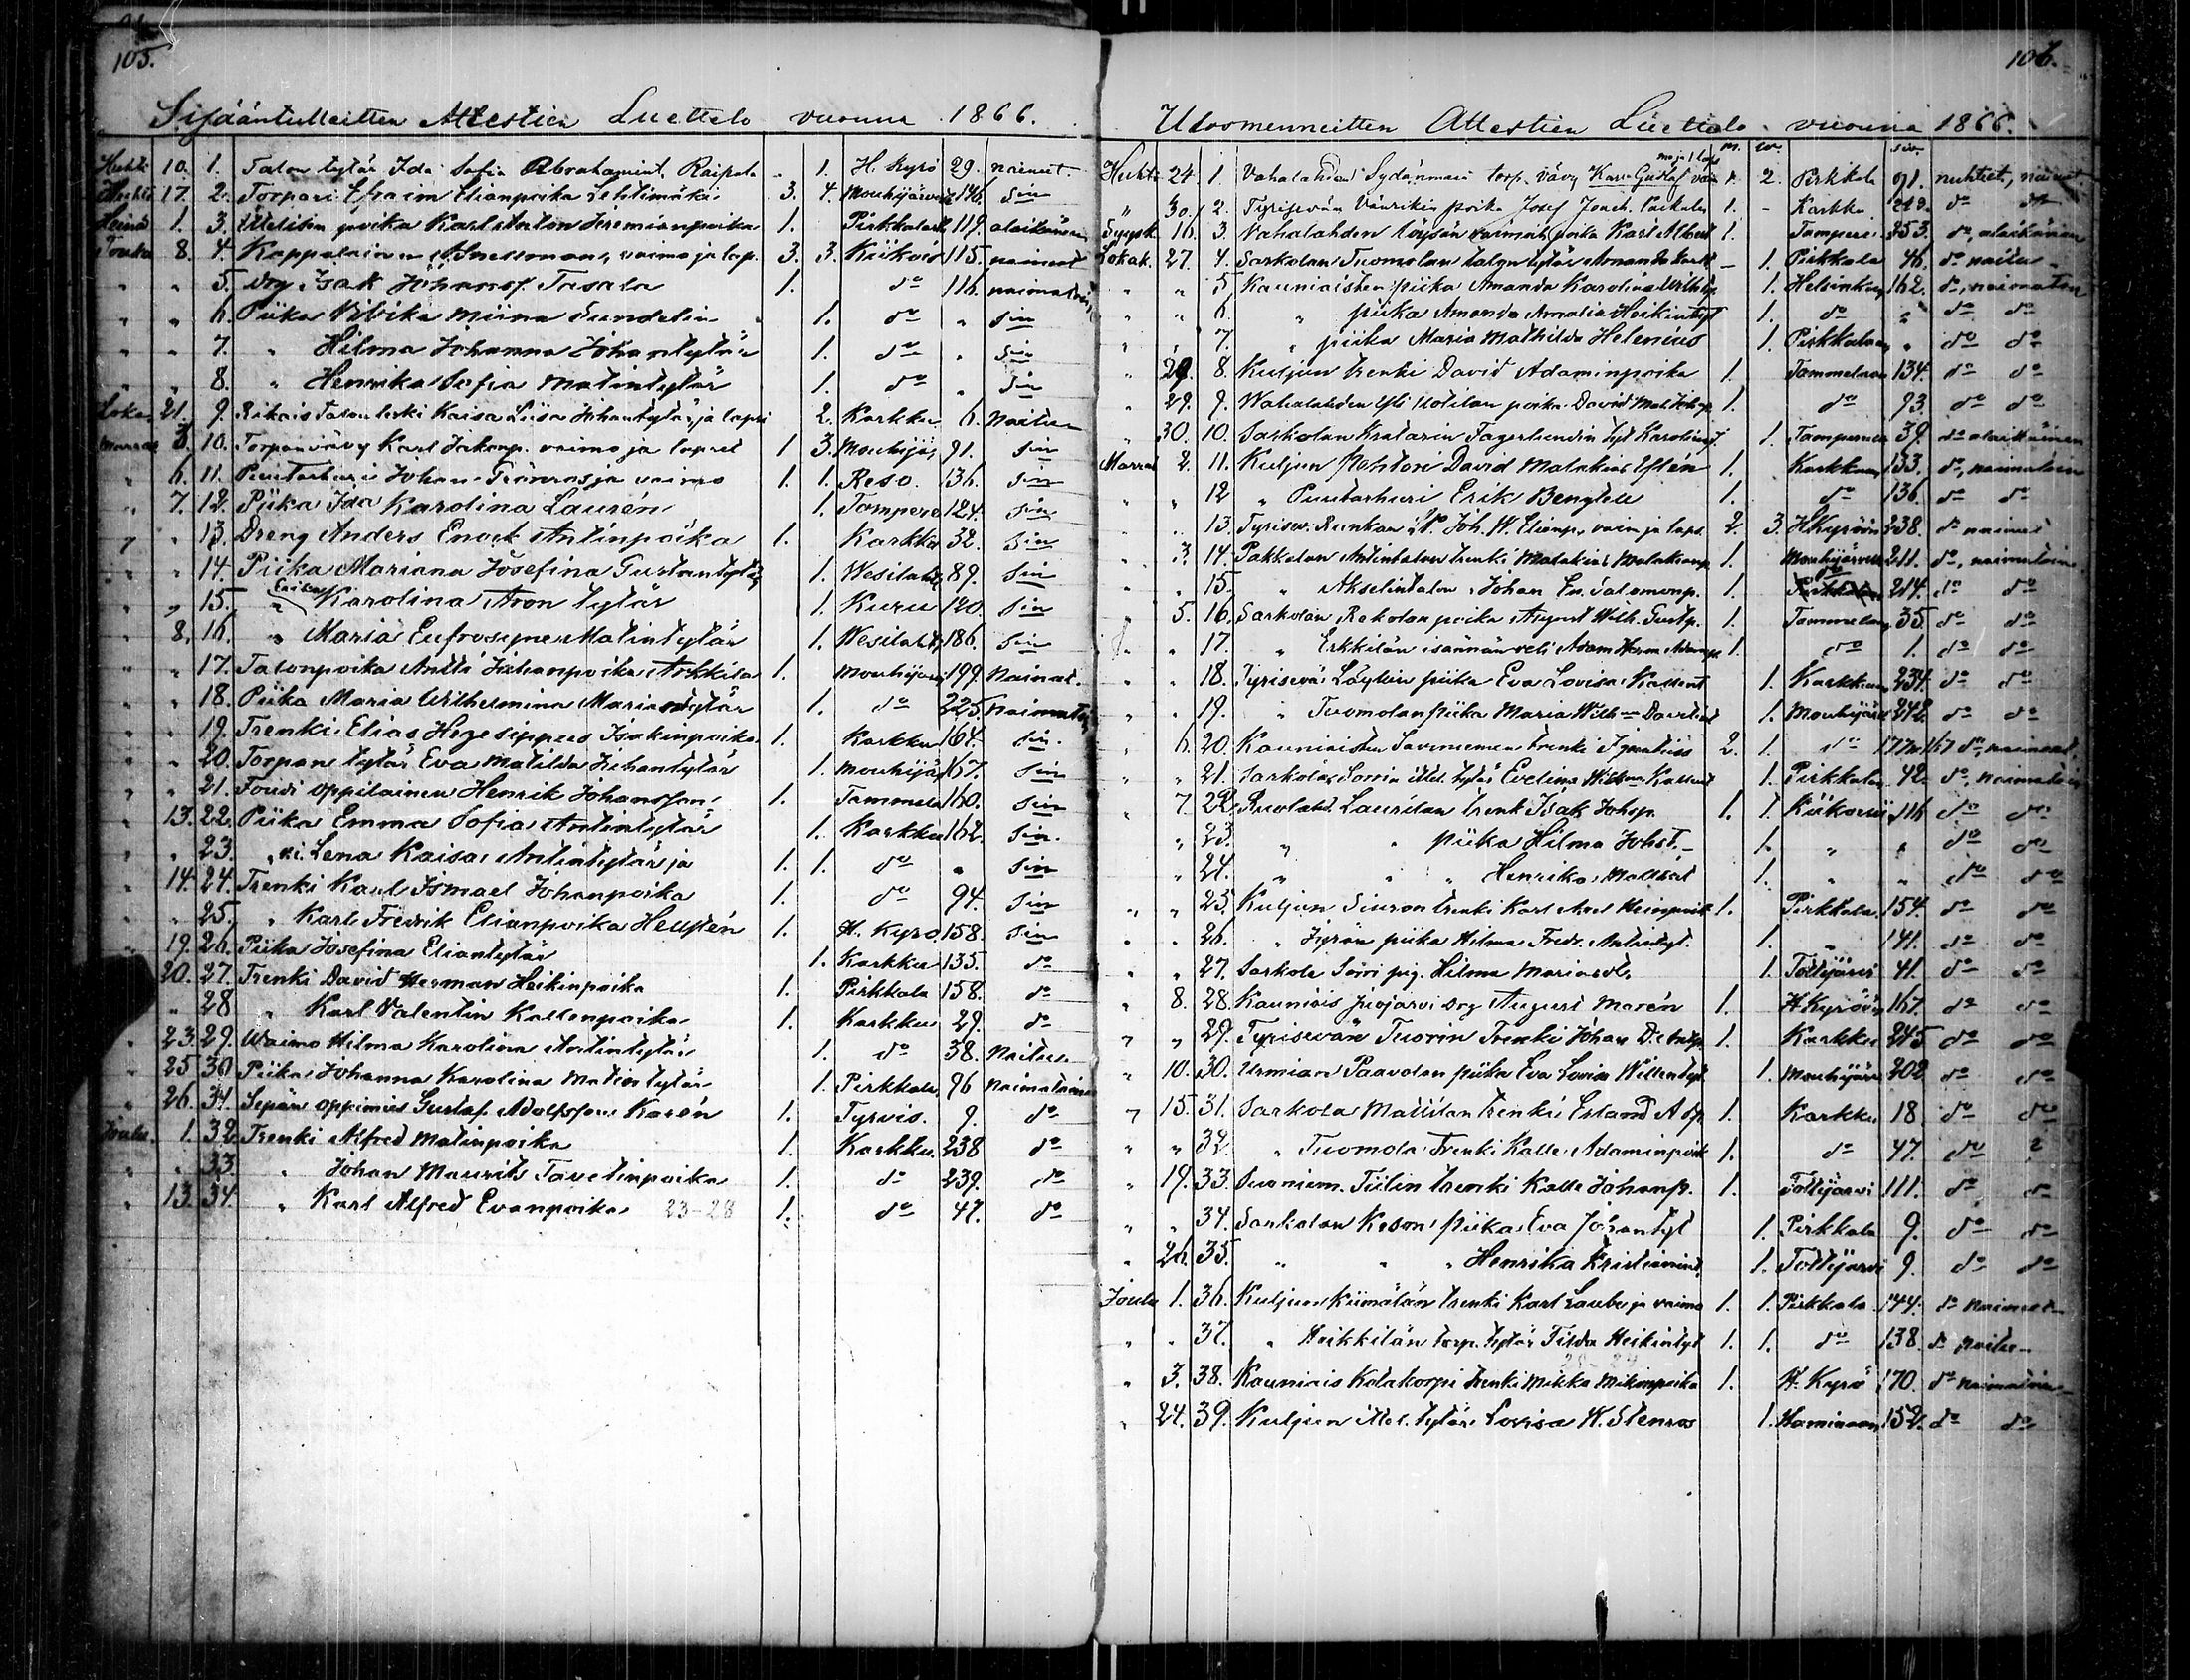 105.
Sisääntulleitten Attestien Luettelo vuonna 1866.
Huhti 10. 1. Talon tytär Ida Sofia Abrahamint. Raipala 1. H. Kyrö 29. nainut.
Huhti 17. 2. Torpari Efraim Elianpoika Lehtimäki 3. 4. Mouhijärvi 146. sin
Heinä 1. 3. Itellisen poika Karl Anton Jeremianpoika 1. Pirkkalast 119. alaikäinen
Touko 8. 4. Kappalainen A. Snellman, vaimo ja lap. 3. 3. Kiikois 115. nainut
" " 5. drg Isak Johanss. Tasala 1. do 116. naimatoin
" " 6. Piika Miina Sundelin 1. do " sin
" " 7. " Hilma Johanna Johantytär 1. do " sin
" " 8. " Henrika Sofia Matintytär 1. do " sin
Loka 21. 9. Talon leski Kaisa Liisa Johantytär ja lapsi 2. Karkku 6. Naitu
Marras 3. 10. Torpan vävy Karl Jakonp. vaimo ja lapset 1 3. Mouhijär 91. sin
" 6. 11. Puutarhuri Johan ja vaimo 1. 1. Reso. 136. sin
" 7. 12. Piika Ida Karolina Laurén 1. Tampere 124. sin
" " 13. Dreng Anders Enock Antinpoika 1. Karkku 32. sin
" " 14. Piika Mariana Josefina Gustantytär 1. Wesilaht 89. sin
" " 15. " Erika Karolina Aron tytär 1. Kuru 120. sin
" 8. 16. " Maria Eufrosyne Matintytär 1. Wesilaht 186. sin
" " 17. Talonpoika Antti Juhanpoika Arkkila 1. Mouhijärv 199. Nainut.
" " 18. Piika Maria Wilhelmina Mariantytär 1. do 225. Naimatoin
" " 19. Trenki Elias Hegesippus Isakinpoika 1. Karkku 164. sin.
" " 20. Torpan tytär Eva Matilda Juhantytär 1. Mouhijär 167. sin
" " 21. oppilainen Henrik Johansson 1. Tammela 160. sin
" 13. 22. Piika Emma Sofia Antintytär 1. Karkku 162. sin.
" " 23. Lena Kaisa Antintytär ja 1. 1. do " sin
" 14. 24. Trenki Karl Ismael Johanpoika 1. do 94. sin
" " 25. " Karl Fredrik Elianpoika Hellstén 1. H. Kyrö 158. sin
" 19. 26. Piika Josefina Eliantytär 1. Karkku 135. do
" 20. 27. Trenki David Herman Heikinpoika 1. Pirkkala 158. do
" " 28 " Karl Valentin Kallenpoika 1. Karkku 29. do
" 23. 29. Waimo Hilma Karolina Antintytär 1. do 38. Naitu
" 25 30 Piika Johanna Karolina Matintytär 1. Pirkkala 96 Naimatoin
" 26. 31. Sepän oppimies Gustaf Adolfsson Karén 1. Tyrvis. 9. do
Joulu. 1. 32. Trenki Alfred Matinpoika 1. Karkku 238 do
" " 33. " Johan Maurits Tavetinpoika 1. do 239. do
" 13. 34. " Karl Alfred Evanpoika 23-28 1. do 47. do
106.
Ulosmenneitten Attestien Luettelo vuonna 1866.
m. w. siv.
mo ja 1 laps
Huhti 24. 1. Vahalahden Sydänmaa torp. vävy Karl Gustaf vai 1. 2. Pirkkala 91. nuhteet, nainut
" 30. 2. Tyrisevän poika Josef Joach. 1. - Karkku 213. do do
Syysk. 16. 3. Vahalahden Löysän vaimon poika Karl Albert 1. Tampere 253. do, alaikäinen
Lokak. 27. 4. Sarkolan Tuomolan talon tytär Amanda — 1. Pirkkala 46. do naitu
" " 5 Kauniaisten piika Amanda Karolina 1. Helsinkiin 162. do, naimatoin
" " 6. " piika Amanda Amalia Heikintyt 1. do " do do
" " 7. " piika Maria Mathilda Helenius 1. Pirkkalaan " do do
" 28. 8. Kuljun trenki David Adaminpoika 1. Tammelaan 134. do do
" 29. 9. Wahalahden Yli Kotilan poika David 1. do 93. do do
" 30. 10. Sarkolan Fagerlundin tyt Karolina 1. Tampereen 39. do alaikäinen
Marras 2. 11. Kuljun David Malakias 1. Karkkuun 133. do, naimatoin
" " 12 " Puutarhuri Erik Bengtell 1. do 136. do do
" " 13. Tyrisev. Runkan Joh. W. Elianp., vaim. ja laps. 2. 3. H.Kyröön 238. do nainut
" 3. 14. Pakkalan Anttintalon trenki Malakias Malakianp. 1. Mouhijärvelle 211. do, naimatoin
" " 15. " Akselintalon Johan En. Salomonp. 1. do 214. do do
" 5. 16. Sarkolan Rekolan poika August Wilh. Gustp. 1. Tammelaan 35. do do
" " 17. " Erkkilän isännän veli Adam Herm. 1. do 1. do do
" " 18. Tyrisevä Löytyn piika Eva Lovisa Kallent 1. Karkkuun 234. do do
" " 19. " Tuomolan piika Maria Wilh. Davidint 1. Mouhijärv 242. do do
" 6. 20. Kauniaisten Savinemen trenki Ignatius 2. 1. do 177. 167 do, nainut
" " 21. Sarkola, Sorrin ittel. tytär Evelina Kallent 1. Pirkkala 42. do, naimatoin
" 7. 22. Ruolahd. Laurilan trenk Isak Johsp. 1. 1. Kiikoisii 116 do do
" 23. " " piika Hilma Johst. 1. " " do do
" 24. " " " Henrika Mattstät 1. " " do do
" " 25. Kuljun Siuron trenki Karl Axel Heinpoik 1. Pirkkala. 154. do do
" " 26. " Jyrän piika Hilma Fredr. Antintyt. 1. " 141. do do
" " 27. Sarkola Soini pig. Hilma Mariadr. 1. Tottijärvi 41. do do
" 8. 28. Kauniais drg August Morén 1. H.Kyröön 167. do do
" " 29. Tyrisevän Tuorin Trenki Johan 1. Karkku 245 do do
" 10. 30. Urmian Paavolan piika Eva Lovisa Willentyt. 1. Mouhijärv 202 do do
" 15. 31. Sarkola Mattilan trenki Erland A 1. Karkku 18. do do
" " 32. " Tuomola Trenki Kalle Adaminpoik 1. do 47. do ?
" 19. 33. Suoniem. Tiilin trenki Kalle Johansp. 1. Tottijärvi 111. do do
" " 34. Sarkolan Keson piika Eva Johantyt 1. Pirkkala 9. do do
" 26. 35. " " " Henrika Kristianint. 1. Tottijärvi 9. do do
Joulu 1. 36. Kuljun Kiimälän trenki Karl Laube ja vaimo 1. 1. Pirkkala 144. do Nainut
" " 37. " Heikkilän torp. tytär Tilda Heikintyt 1. 1. do 138. do naitu
" 3. 38. Kauniais Kolakorpi trenki Mikko Mikonpoika 1. H. Kyrö 170. do naimatoin
" 24. 39. Kuljun ittel. tytär Lovisa K. Stenros 1. Haminaan 152. do do